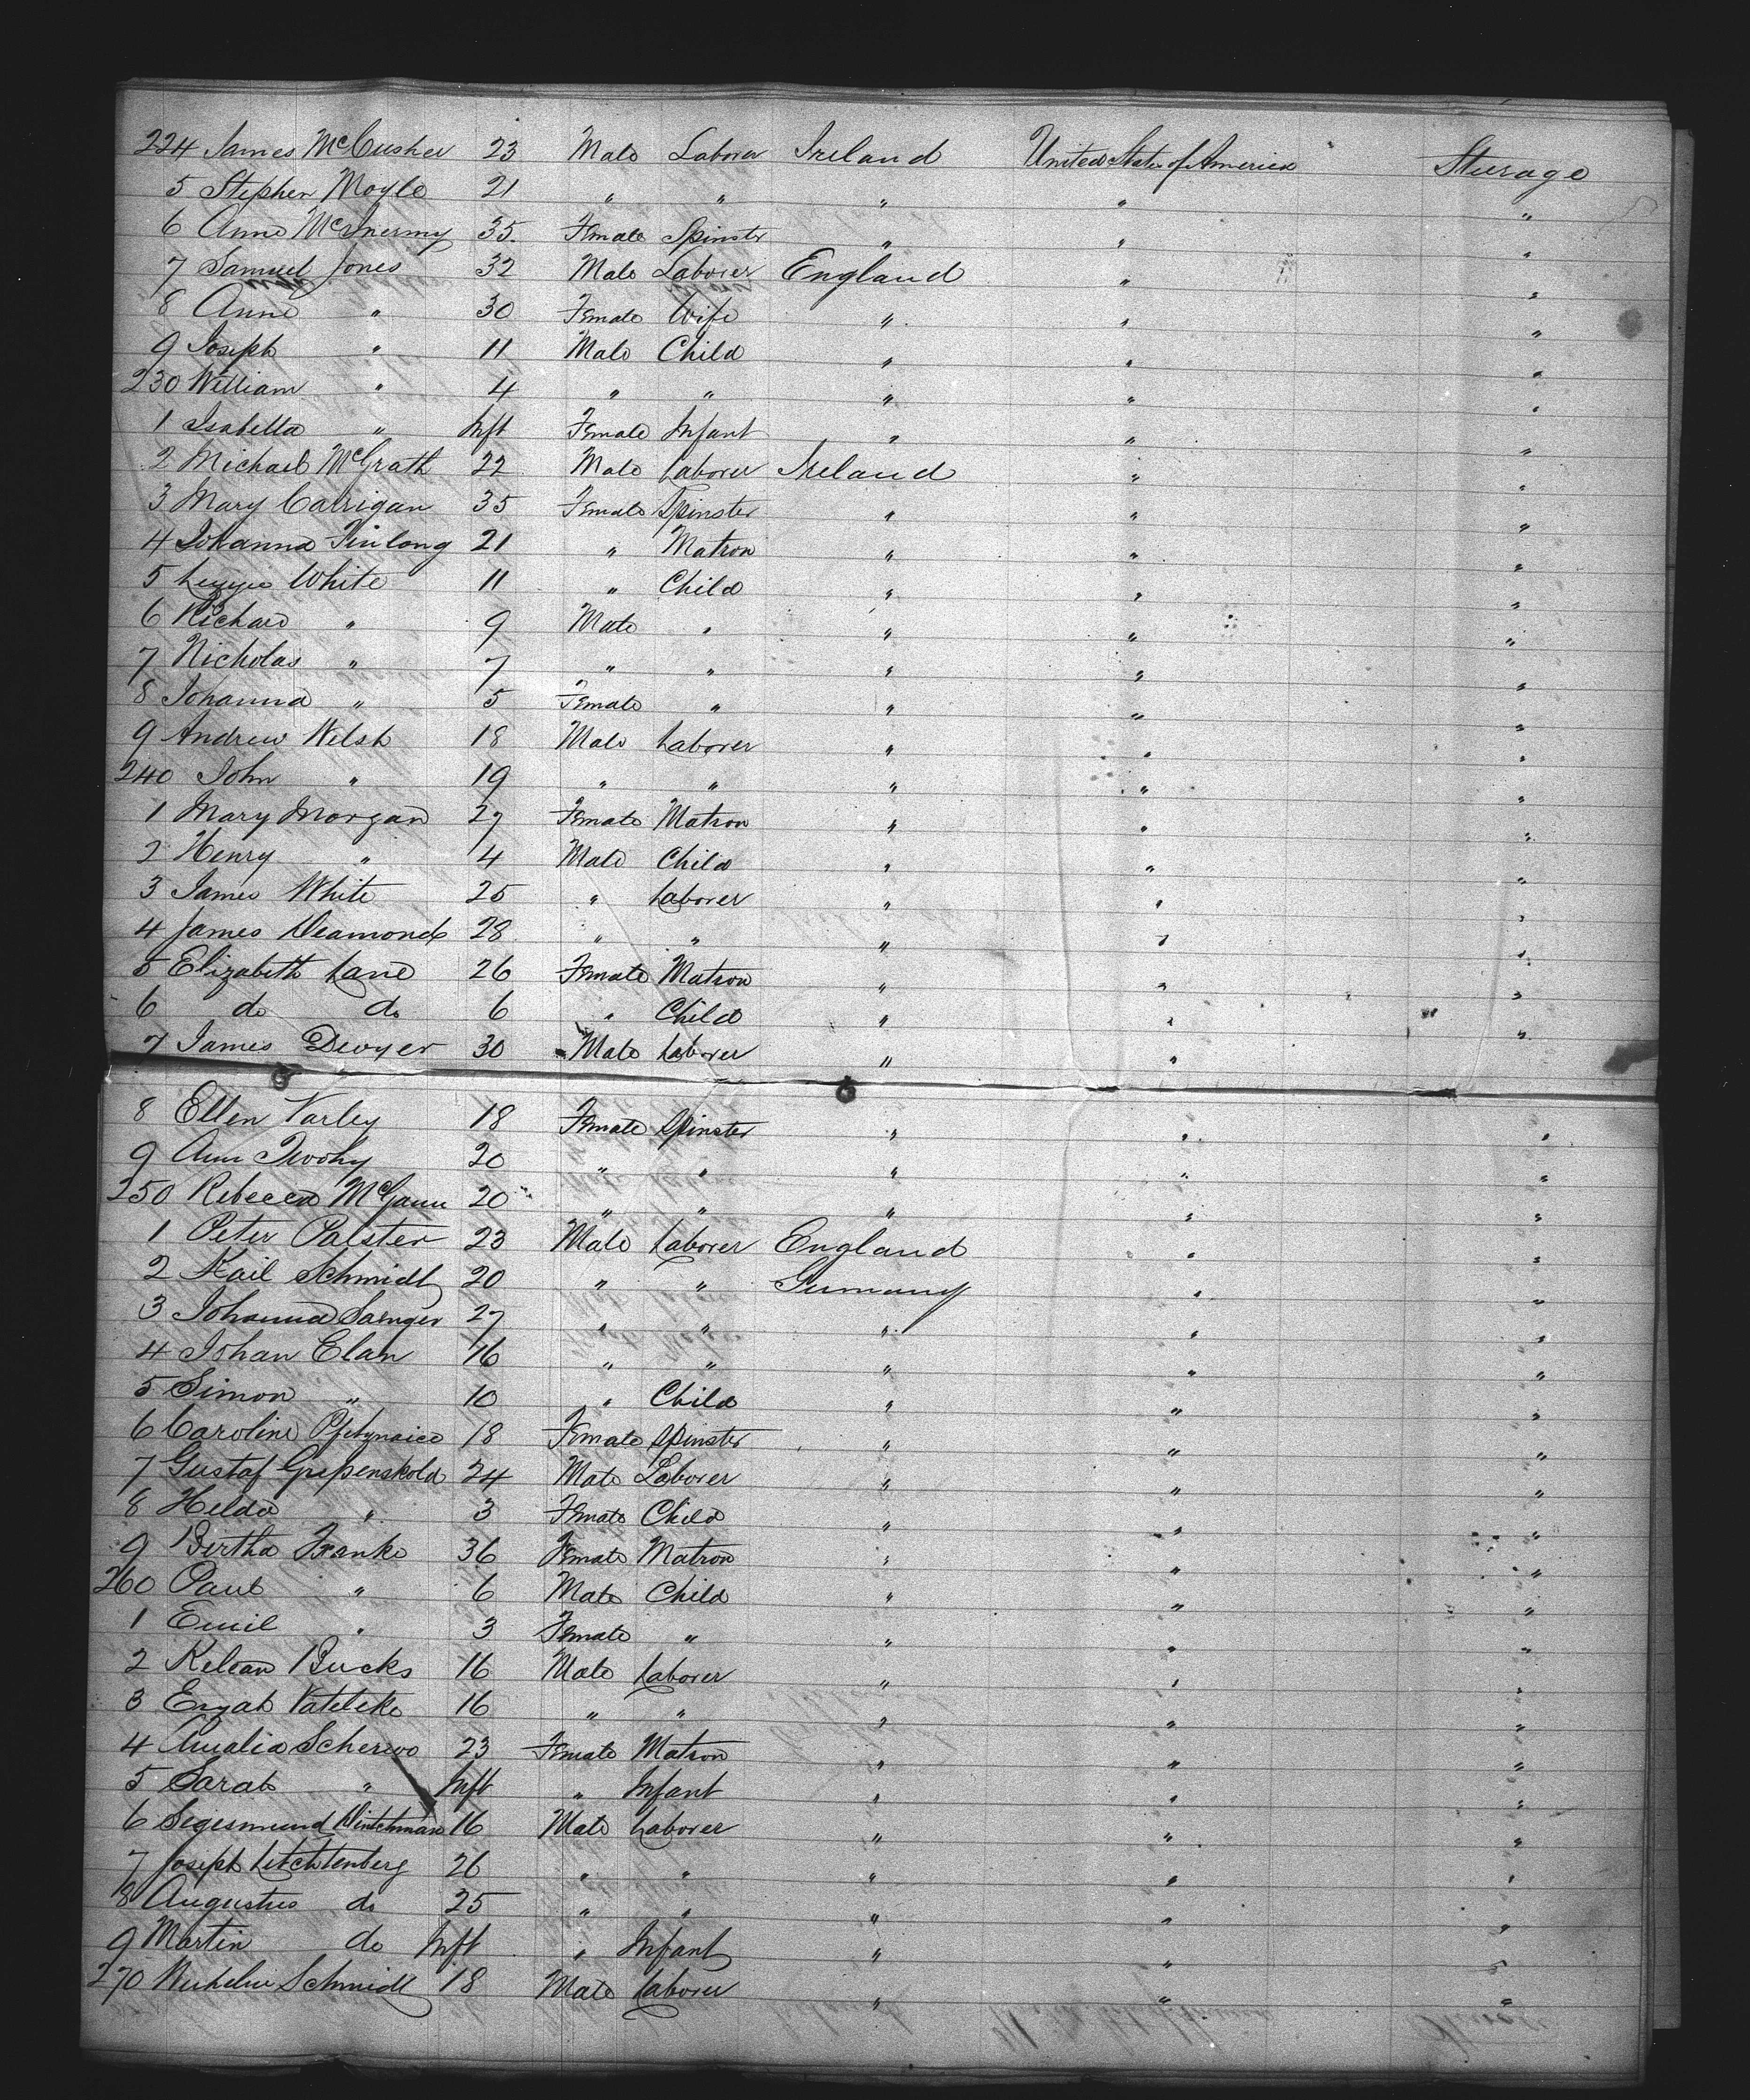 224 James McCusher 23 Male Laborer Ireland United States of America Steerage
5 Stephen Moyle 21 " " " " "
6 Anne McInermy 35 Female Spinster " " "
7 Samuel Jones 32 Male Laborer England " "
8 Anne " 30 Female Wife " " "
9 Joseph " 11 Male Child " " "
230 William " 4 " " " " "
1 Isabella " Inft Female Infant " " "
2 Michael McGrath 22 Male Laborer Ireland " "
3 Mary Carrigan 35 Female Spinster " " "
4 Johanna Finlong 21 " Matron " " "
5 Lizzie White 11 " Child " " "
6 Richard " 9 Male " " " "
7 Nicholas " 7 " " " " "
8 Johanna " 5 Female " " " "
9 Andrew Welsh 18 Male Laborer " " "
240 John " 19 " " " " "
1 Mary Morgan 27 Female Matron " " "
2 Henry " 4 Male Child " " "
3 James White 25 " Laborer " " "
4 James Deamond 28 " " " " "
5 Elizabeth Lane 26 Female Matron " " "
6 do do 6 " Child " " "
7 James Dwyer 30 Male Laborer " " "
8 Ellen Varley 18 Female Spinster " " "
9 Ann Twohy 20 " " " " "
250 Rebecca McGann 20 " " " " "
1 Peter Palster 23 Male Laborer England " "
2 Kail Schmidt 20 " " Germany " "
3 Johanna Saenger 27 " " " " "
4 Johan Elan 16 " " " " "
5 Simon " 10 " Child " " "
6 Caroline 18 Female Spinster " " "
7 Gustaf Gripenskold 24 Male Laborer " " "
8 Helda " 3 Female Child " " "
9 Bertha Franke 36 Female Matron " " "
260 Paul " 6 Male Child " " "
1 Emil " 3 Female " " " "
2 Kelean Bucks 16 Male Laborer " " "
3 16 " " " " "
4 Amalia Scherwo 23 Female Matron " " "
5 Sarah " Inft " Infant " " "
6 Segesmund 16 Male Laborer " " "
7 Joseph Letchtenberg 26 " " " " "
8 Augustus do 25 " " " " "
9 Martin do Inft " Infant " " "
270 Schmidt 18 Male Laborer " " "